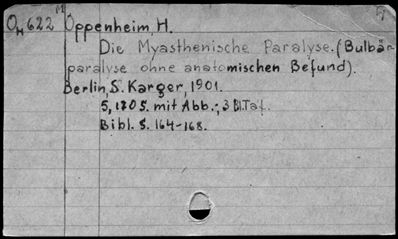 Oн 622 Oppenheim, H.
Die Myasthenische Paralyse. (Bulbär-
paralyse ohne anatomischen Befund).
Berlin, S. Karger, 1901.
5, 170 S. mit Abb.; 3 Bl. Taf.
Bibl. S. 164-168.